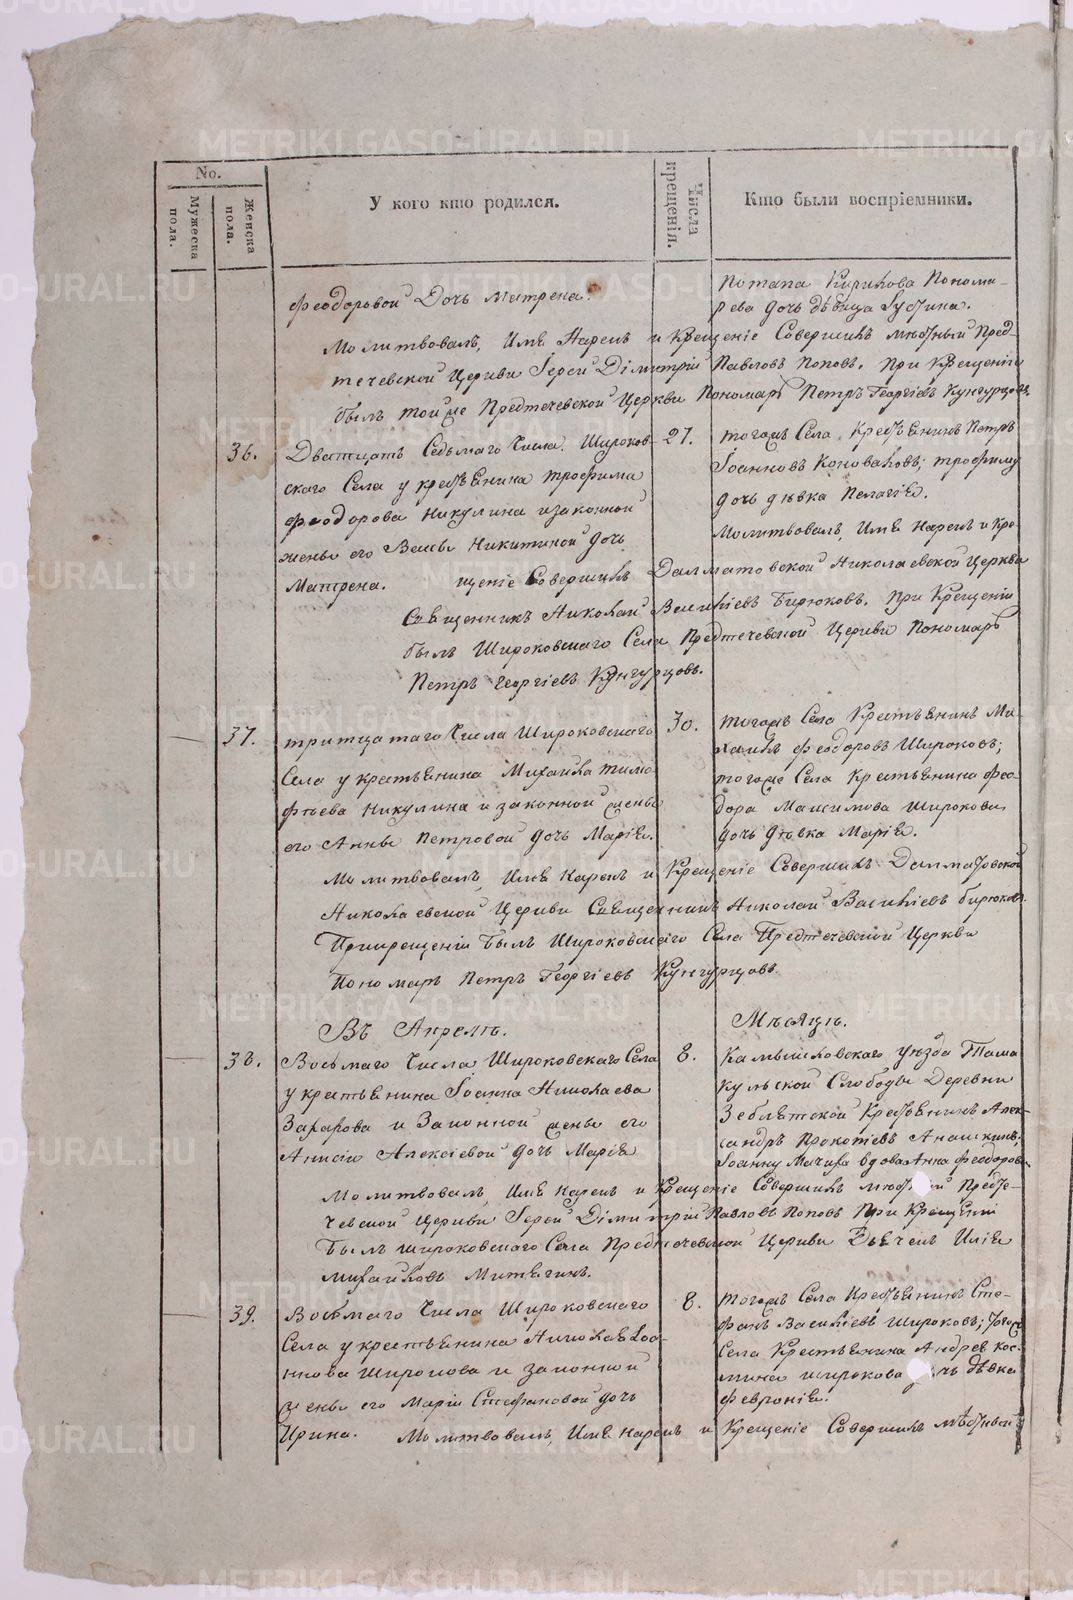 No.
Мужеска пола.
Женска пола.
У кого кто родился.
Числа крещенія.
Кто были воспріемники.
Феодоровой Дочь Матрена.
Потапа Кирилова Понома-
рева дочь дѣвица Іустина.
Молитвовалъ, Имя Нарекъ и Крещеніе Совершилъ мѣстный Пред-
течевской Церкви Іерей Димитрій Павловъ Поповъ. При Крещеніи
былъ той же Предтечевской Церкви Пономарь Петръ Георгіевъ Кунгурцовъ.
36.
Дватцать Седьмаго Числа. Широков-
скаго Села у крестьянина Трофима
Феодорова Никулина и законной
жены его Никитиной дочь
Матрена.
27.
тогожъ Села Крестьянинъ Петръ
Іоанновъ Коноваловъ; Трофиму
дочь дѣвка Пелагія.
Молитвовалъ, Имя Нарекъ и Кре-
щеніе Совершилъ Далматовской Николаевской Церкви
Священникъ Николай Василіевъ Бирюковъ. При Крещеніи
былъ Широковскаго Села Предтечевской Церкви Пономарь
Петръ Георгіевъ Кунгурцовъ.
37.
тритцатаго Числа Широковскаго
Села у крестьянина Михаила Тимо-
фѣева Никулина и законной жены
его Анны Петровой дочь Марія.
30.
тогожъ Села Крестьянинъ Ми-
хаилъ Феодоровъ Широковъ;
тогоже Села Крестьянина Фео-
дора Максимова Широкова
дочь дѣвка Марія.
Молитвовалъ, Имя Нарекъ и Крещеніе Совершилъ Далматовской
Николаевской Церкви Священникъ Николай Василіевъ Бирюковъ.
При крещеніи былъ Широковскаго Села Предтечевской Церкви
Пономарь Петръ Георгіевъ Кунгурцовъ.
Въ Апрелѣ. Мѣсяцѣ.
38.
Восьмаго Числа Широковскаго Села
у крестьянина Іоанна Николаева
Захарова и Законной жены его
Анисіи Алексіевой дочь Марія
8.
Камышловскаго уѣзда Тама
кульской Слободы Деревни
Зеблятской Крестьянинъ Алек-
сандръ Прокопіевъ Анашкинъ;
Іоанну Мачиха вдова Анна Феодорова.
Молитвовалъ, Имя Нарекъ и Крещеніе Совершилъ мѣстный Предте-
чевской Церкви Іерей Димитрій Павловъ Поповъ При Крещеніи
былъ широковскаго Села Предтечевской Церкви Дьячекъ Илія
Михайловъ Митягинъ.
39.
Восьмаго Числа Широковскаго
Села у крестьянина Николая Іоа-
ннова Широкова и законной
жены его Маріи Стефановой дочь
Ирина.
8.
тогожъ Села Крестьянинъ Сте-
фанъ Василіевъ Широковъ; тогожъ
Села Крестьянина Андрея Кос-
мина широкова дочь дѣвка
Февронія.
Молитвовалъ, Имя Нарекъ и Крещеніе Совершилъ мѣстный